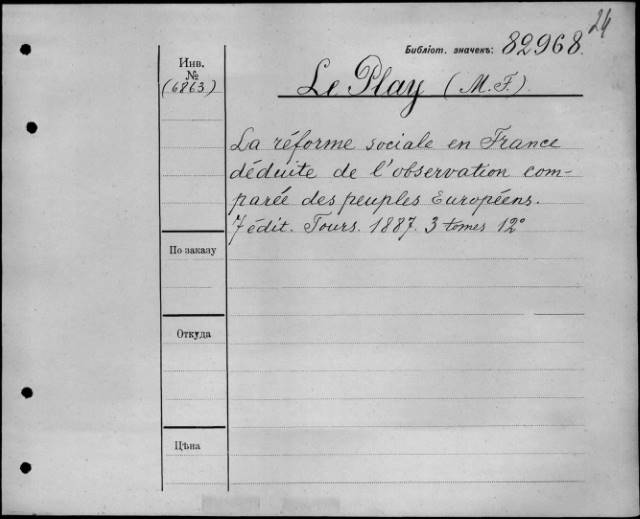 24
Библіот. значекъ: 82968.
Инв.
№
(6863)
Le Play (M. F.).
La réforme sociale en France
déduite de l'observation com-
parée des peuples Européens.
7 édit. Tours. 1887. 3 tomes 12°
По заказу
Откуда
Цѣна